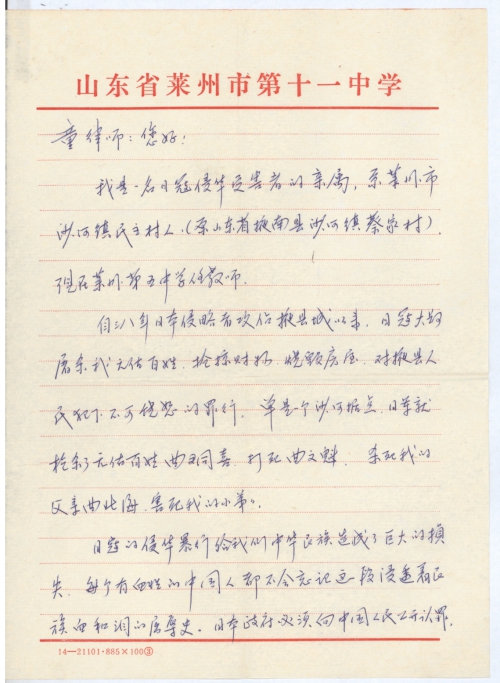 山东省莱州市第十一中学
童律师：您好！
我是一名日寇侵华受害者的亲属，原莱州市
沙河镇民主村人（原山东省掖南县沙河镇蔡家村）
现在莱州第五中学任教师。
自三八年日本侵略者攻占掖县城以来，日寇大肆
屠杀我无估百姓，抢掠财物，烧毁房屋，对掖县人
民犯下不可饶恕的罪行，单是个沙河据点，日军就
枪杀了无估百姓曲文同喜，打死曲文魁，杀死我的
父亲曲北海，害死我的小弟。
日寇的侵华暴行给我们中华民族造成了巨大的损
失，每个有血性的中国人都不会忘记这段浸透着民
族血和泪的屈辱史。日本政府必须向中国人民公开认罪，
14—21101·885×100③